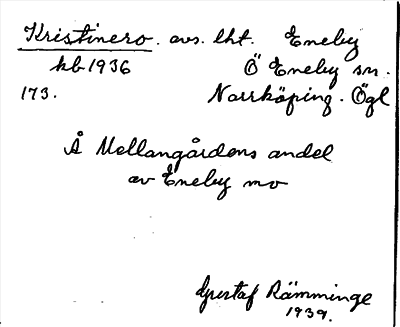 Kristinero. avs. lht. Eneby
kb 1936 Ö Eneby sn.
173. Norrköping. Ögl
Å Mellangårdens andel
av Eneby mo
Gustaf Rämminge
1939.